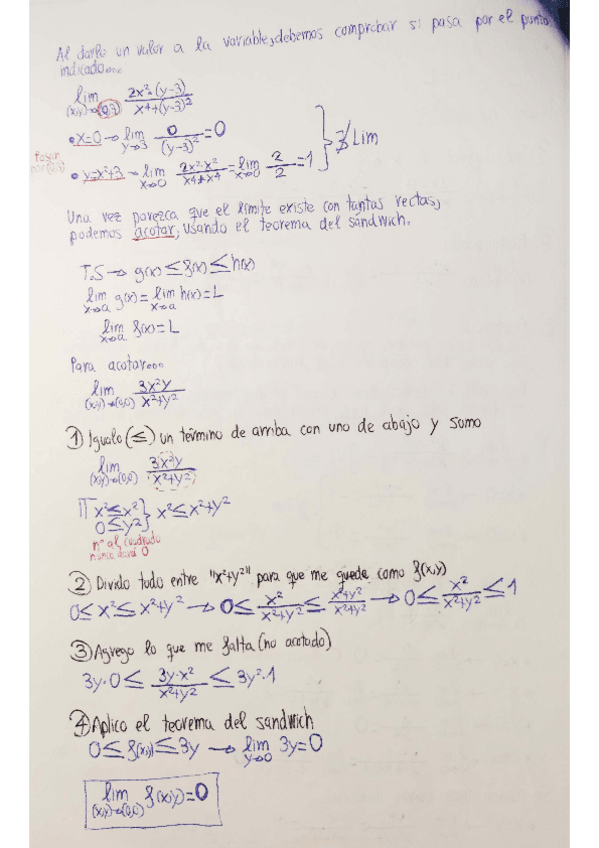 Al darle un valor a la variable, debemos comprobar si pasa por el punto
indicado...
lim (x,y)→(0,3) 2x²·(y-3) / x⁴+(y-3)²
• x=0 → lim y→3 0/(y-3)² = 0
Pasan por (0,3)
• y=x²+3 → lim x→0 2x²·x²/x⁴+x⁴ = lim x→0 2/2 = 1 } ∄ Lim
Una vez parezca que el límite existe con tantas rectas,
podemos acotar, usando el teorema del sándwich.
T.S → g(x) ≤ f(x) ≤ h(x)
lim x→a g(x) = lim x→a h(x) = L
lim x→a f(x) = L
Para acotar...
lim (x,y)→(0,0) 3x²y / x²+y²
① Igualo (≤) un término de arriba con uno de abajo y sumo
lim (x,y)→(0,0) 3x²y / x²+y²
x² ≤ x²
0 ≤ y² } x² ≤ x²+y²
nº al cuadrado
nunca dará 0
② Divido todo entre "x²+y²" para que me quede como f(x,y)
0 ≤ x² ≤ x²+y² → 0 ≤ x²/x²+y² ≤ x²+y²/x²+y² → 0 ≤ x²/x²+y² ≤ 1
③ Agrego lo que me falta (no acotado)
3y·0 ≤ 3y·x²/x²+y² ≤ 3y·1
④ Aplico el teorema del sandwich
0 ≤ f(x,y) ≤ 3y → lim y→0 3y = 0
lim (x,y)→(0,0) f(x,y) = 0